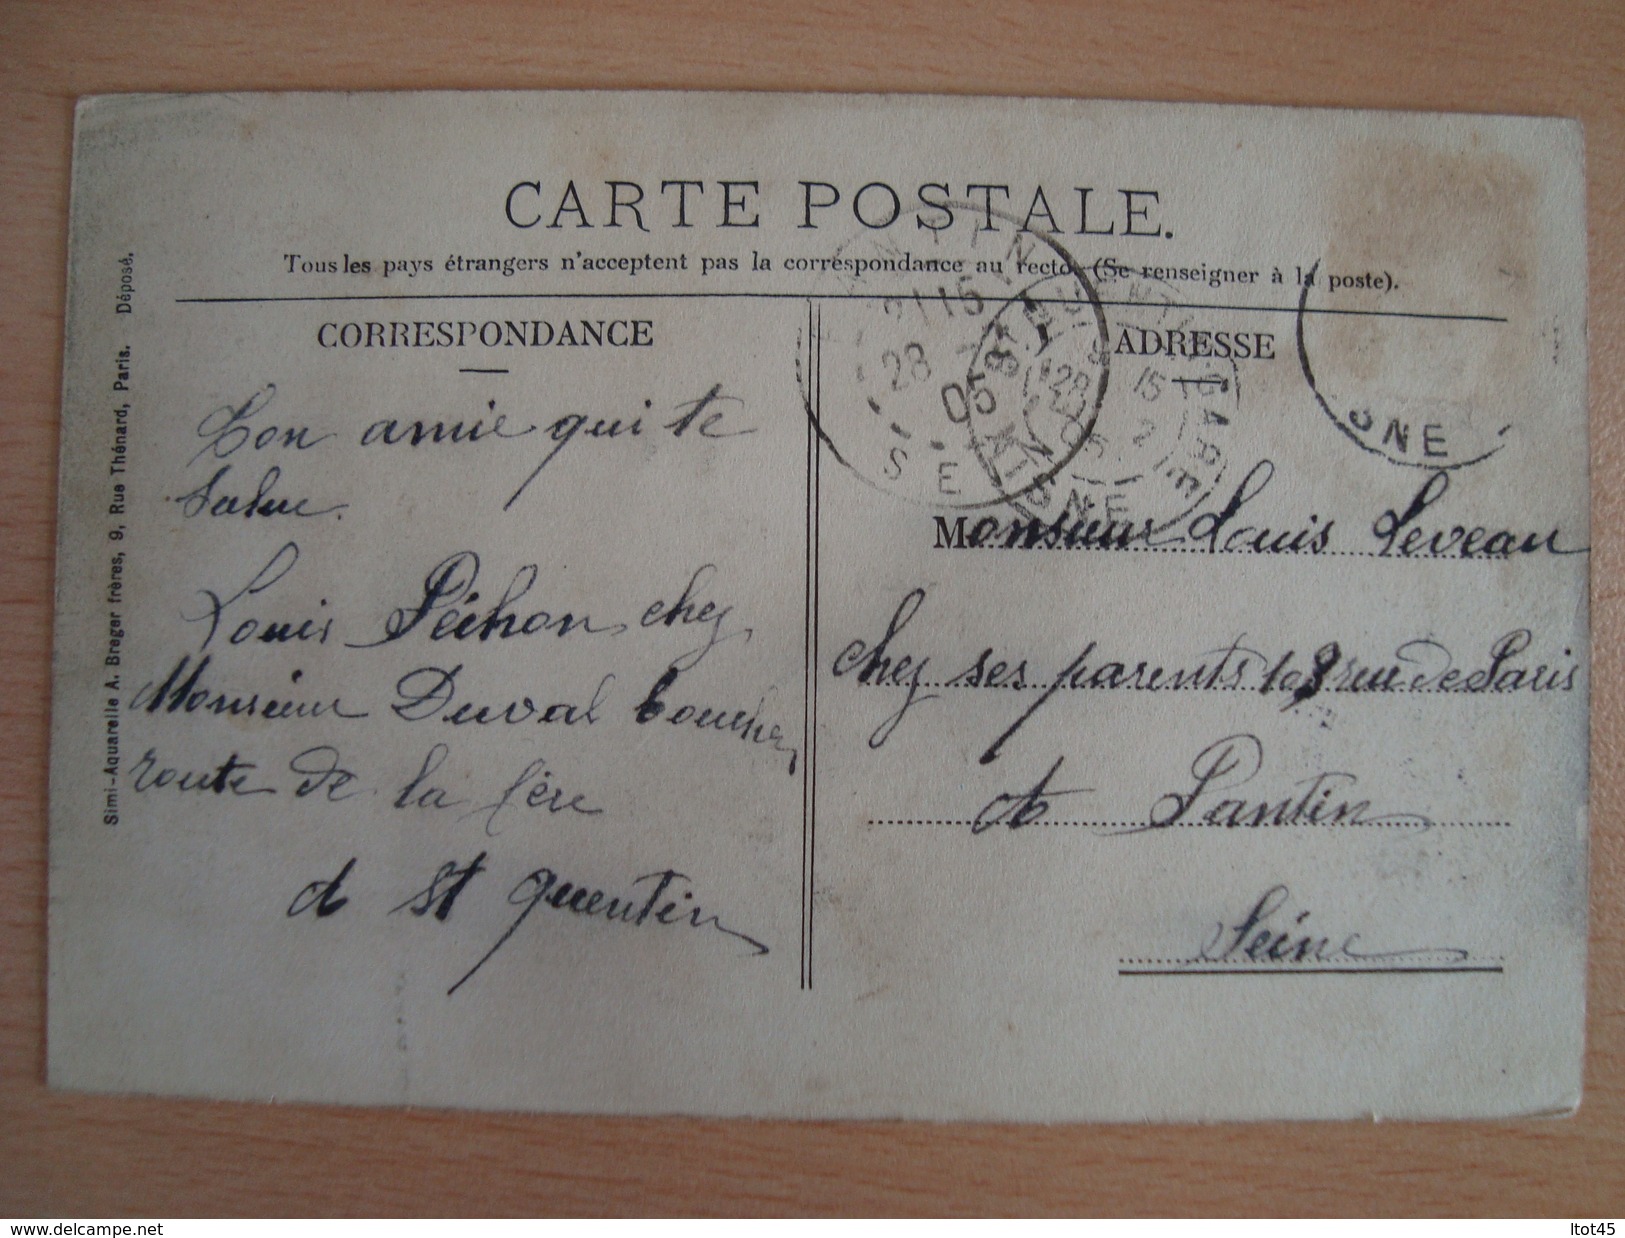 CARTE POSTALE.
Tous les pays étrangers n'acceptent pas la correspondance au recto. (Se renseigner à la poste).
CORRESPONDANCE
ADRESSE
Simi-Aquarelle A. Breger frères, 9, Rue Thénard, Paris. Déposé.
Ton amie qui te
salue.
Louis Péchon chez
Monsieur Duval boucher
route de la fère
à St quentin
Monsieur Louis Leveau
chez ses parents rue de Paris
à Pantin
Seine
PANTIN
28
05
SE
ST QUENTIN GARE
15
28
05
AISNE
SNE
delcampe.net
ltot45